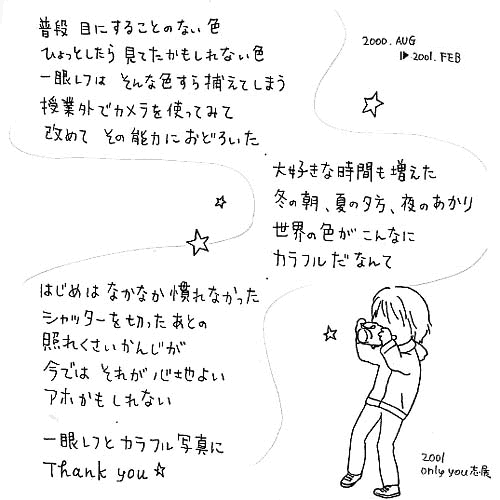 普段 目にすることのない色
ひょっとしたら 見てたかもしれない色
一眼レフは そんな色すら捕えてしまう
授業外でカメラを使ってみて
改めて その能力におどろいた
2000. AUG
▷ 2001. FEB
大好きな時間も増えた
冬の朝、夏の夕方、夜のあかり
世界の色がこんなに
カラフルだなんて
はじめは なかなか慣れなかった
シャッターを切ったあとの
照れくさいかんじが
今では それが心地よい
アホかもしれない
一眼レフとカラフル写真に
Thank you ☆
2001
only you 志展